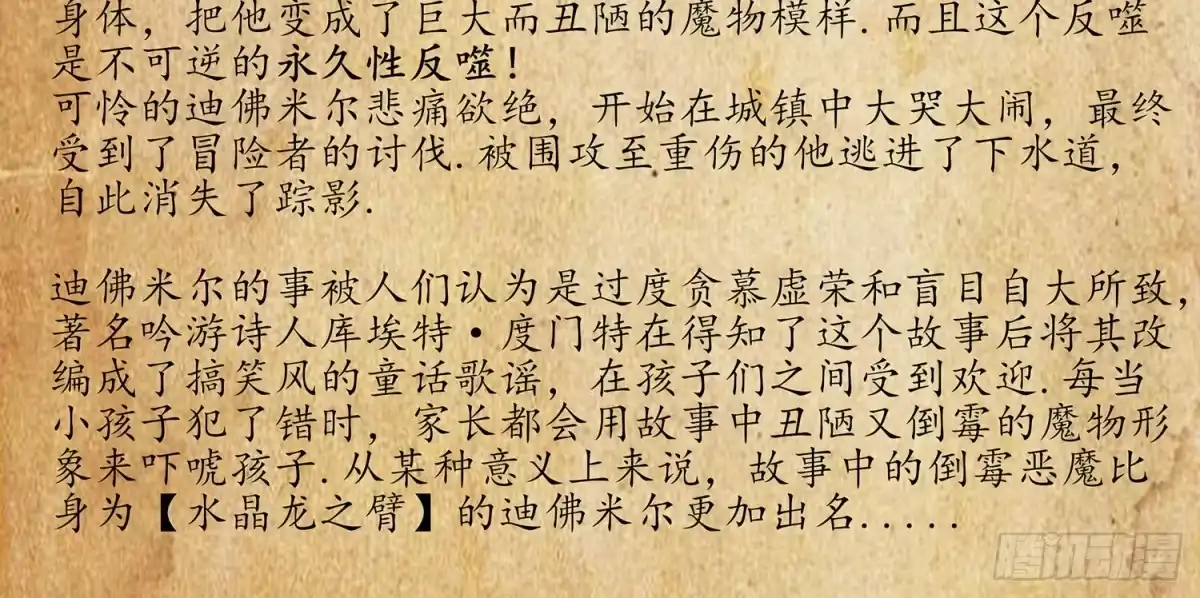 身体，把他变成了巨大而丑陋的魔物模样.而且这个反噬
是不可逆的永久性反噬！
可怜的迪佛米尔悲痛欲绝，开始在城镇中大哭大闹，最终
受到了冒险者的讨伐.被围攻至重伤的他逃进了下水道，
自此消失了踪影.
迪佛米尔的事被人们认为是过度贪慕虚荣和盲目自大所致，
著名吟游诗人库埃特·度门特在得知了这个故事后将其改
编成了搞笑风的童话歌谣，在孩子们之间受到欢迎.每当
小孩子犯了错时，家长都会用故事中丑陋又倒霉的魔物形
象来吓唬孩子.从某种意义上来说，故事中的倒霉恶魔比
身为【水晶龙之臂】的迪佛米尔更加出名.....
腾讯动漫